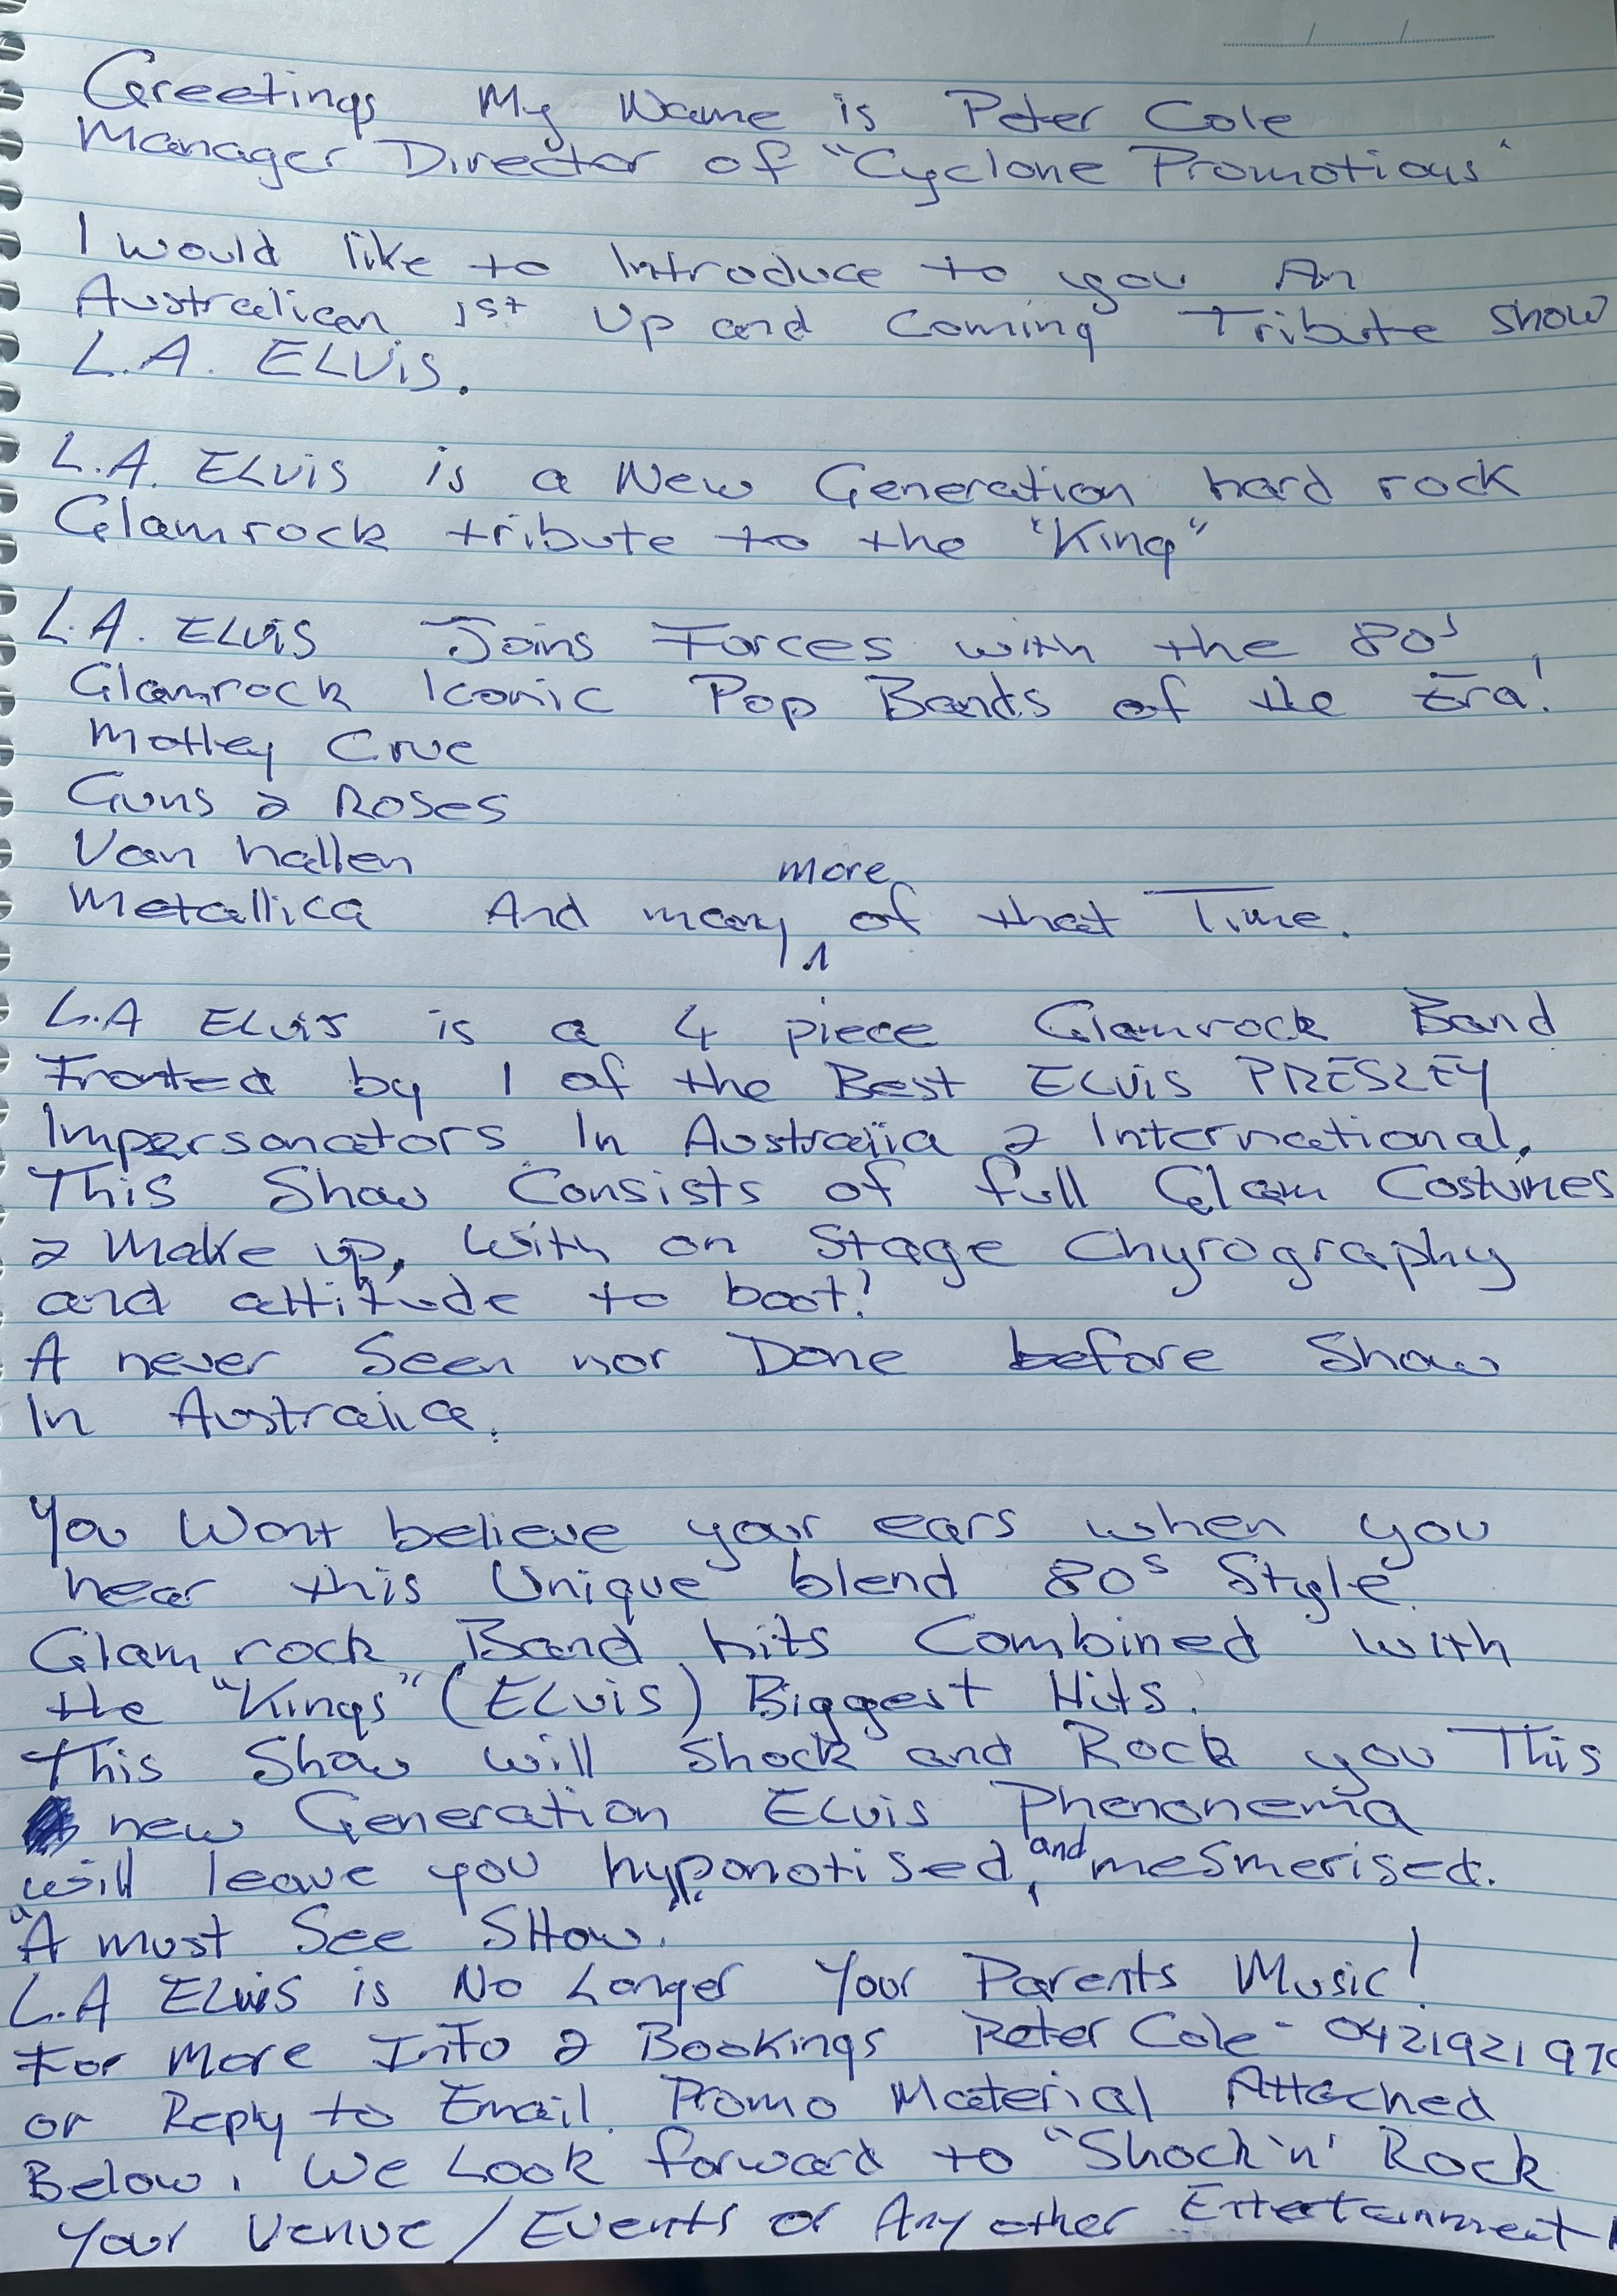 Greetings My Name is Peter Cole
Manager Director of "Cyclone Promotions"
I would like to Introduce to you An
Australian 1st Up and Coming Tribute show
L.A. ELVIS.
L.A. ELVIS is a New Generation hard rock
Glamrock tribute to the "King"
L.A. ELVIS Joins Forces with the 80s
Glamrock Iconic Pop Bands of the Era!
Motley Crue
Guns & Roses
Van hallen
Metallica And many more of that Time.
L.A ELVIS is a 4 piece Glamrock Band
Fronted by 1 of the Best ELVIS PRESLEY
Impersonators In Australia & International.
This Show Consists of full Glam Costumes
& Make up, with on Stage Chyrography
and attitude to boot!
A never Seen nor Done before Show
In Australia.
You Wont believe your ears when you
hear this Unique blend 80s Style
Glam rock Band hits Combined with
the "Kings" (ELVIS) Biggest Hits.
This Show will Shock and Rock you This
new Generation ELVIS Phenonema
will leave you hyponotised, and mesmerised.
"A must See SHow."
L.A ELVIS is No Longer Your Parents Music!
For More Info & Bookings Peter Cole - 0421921 97
or Reply to Email Promo Material Attached
Below. We Look forward to "Shock 'n' Rock
Your Venue / Events or Any other Entertainment